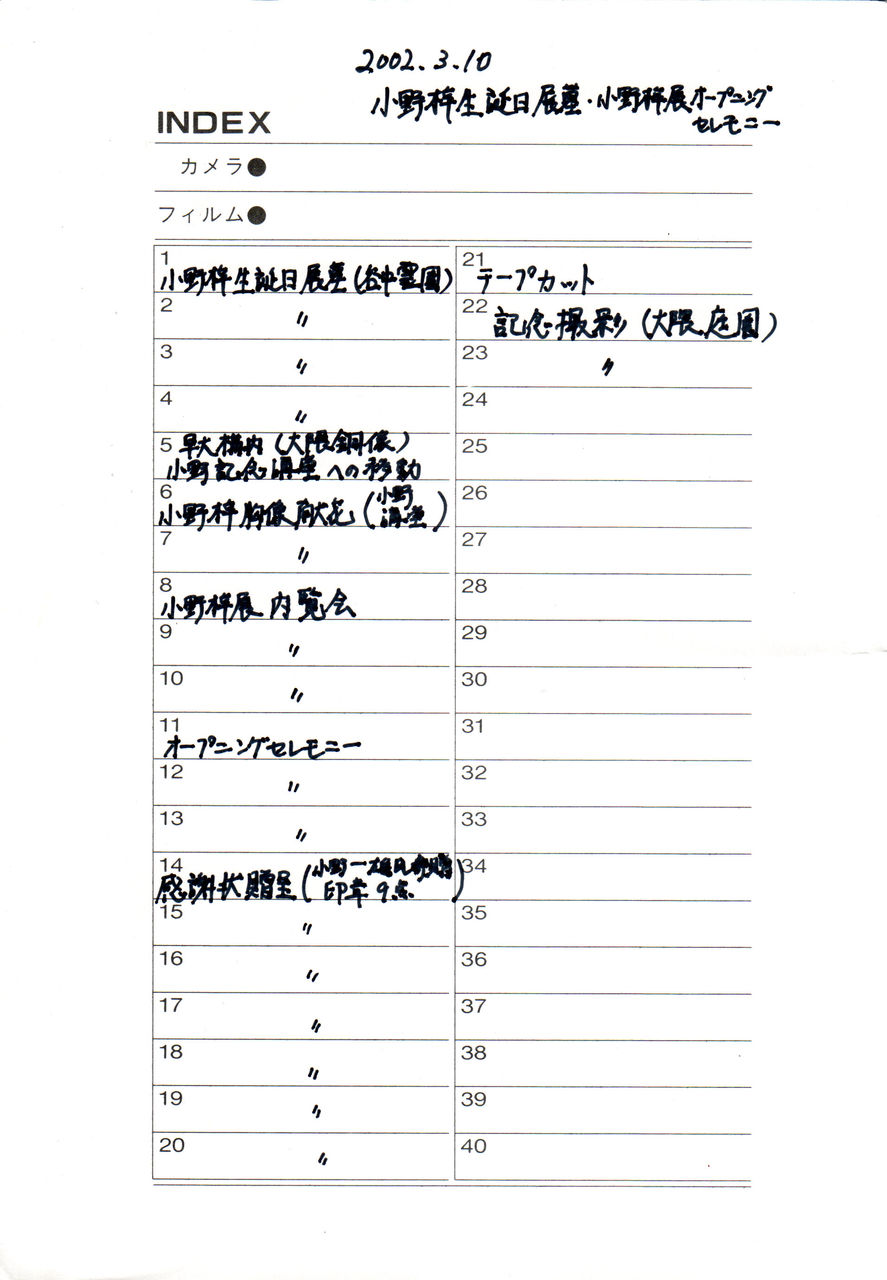 2002.3.10
小野梓生誕日展墓・小野梓展オープニング
セレモニー
INDEX
カメラ●
フィルム●
1
小野梓生誕日展墓(谷中霊園)
2 〃
3 〃
4 〃
5 早大構内(大隈銅像)
小野記念講堂への移動
6
小野梓胸像献花(小野講堂)
7 〃
8
小野梓展内覧会
9 〃
10 〃
11
オープニングセレモニー
12 〃
13 〃
14
感謝状贈呈(小野一雄氏寄贈
印章9点)
15 〃
16 〃
17 〃
18 〃
19 〃
20 〃
21
テープカット
22 記念撮影(大隈庭園)
23 〃
24
25
26
27
28
29
30
31
32
33
34
35
36
37
38
39
40